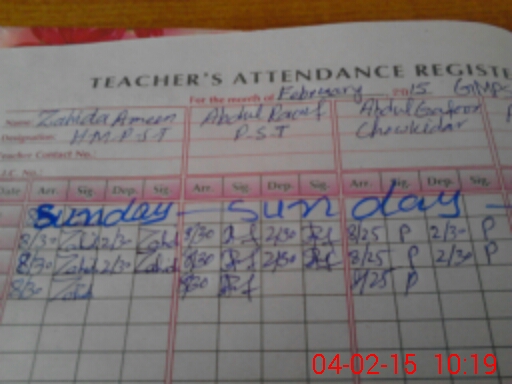 TEACHER'S ATTENDANCE REGISTE
For the month of February 2015
Name: Zahida Ameen Abdul Raouf Abdul Gafoor
Designation: H.M.P.S.T P.S.T Chowkidar
Teacher Contact No.:
Date Arr. Sig. Dep. Sig. Arr. Sig. Dep. Sig. Arr. Sig. Dep. Sig.
Sunday - Sunday -
8/30 Zahid 2/30 Zahid 8/30 2/30 8/25 P 2/30 P
8/30 Zahid 2/30 Zahid 8/30 2/30 8/25 P 2/30 P
8/30 Zahid 8/30 8/25 P
04-02-15 10:19